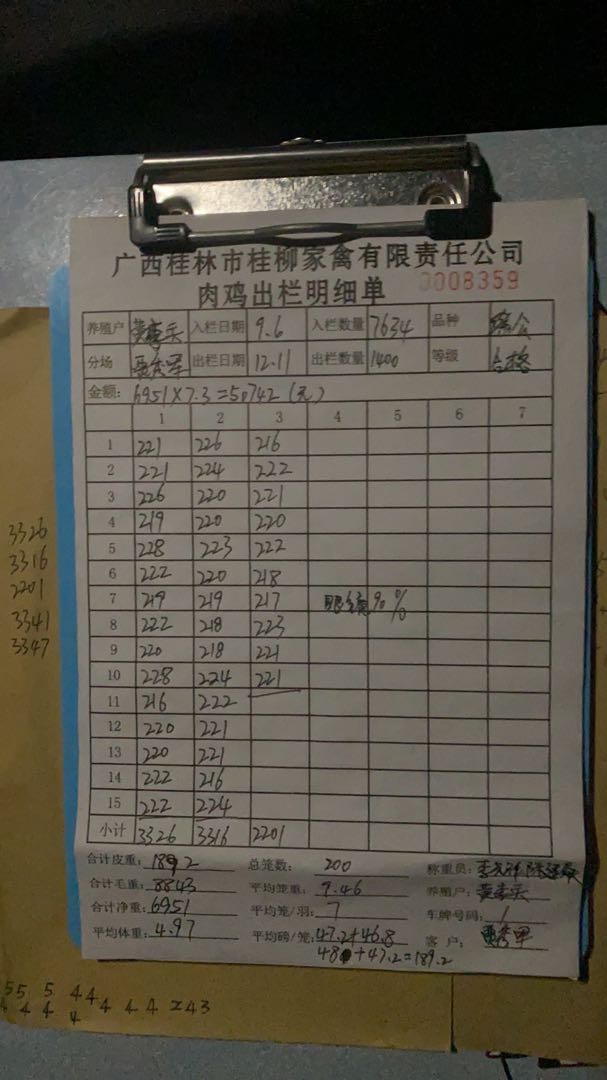 广西桂林市桂柳家禽有限责任公司
肉鸡出栏明细单 0008359
养殖户 入栏日期 9.6 入栏数量 7634 品种
分场 出栏日期 12.11 出栏数量 1400 等级 合格
金额: 6951×7.3=50742(元)
1 2 3 4 5 6 7
1 221 226 216
2 221 224 222
3 226 220 221
4 219 220 220
5 228 223 222
6 222 220 218
7 219 219 217 90%
8 222 218 223
9 220 218 221
10 228 224 221
11 216 222
12 220 221
13 220 221
14 222 216
15 222 224
小计 3326 3316 2201
合计皮重: 1892 总笼数: 200 称重员:
合计毛重: 8843 平均笼重: 9.46 养殖户:
合计净重: 6951 平均笼/羽: 7 车牌号码: /
平均体重: 4.97 平均磅/笼: 47.2+46.8 客户:
+47.2=189.2
3326
3316
2201
3341
3347